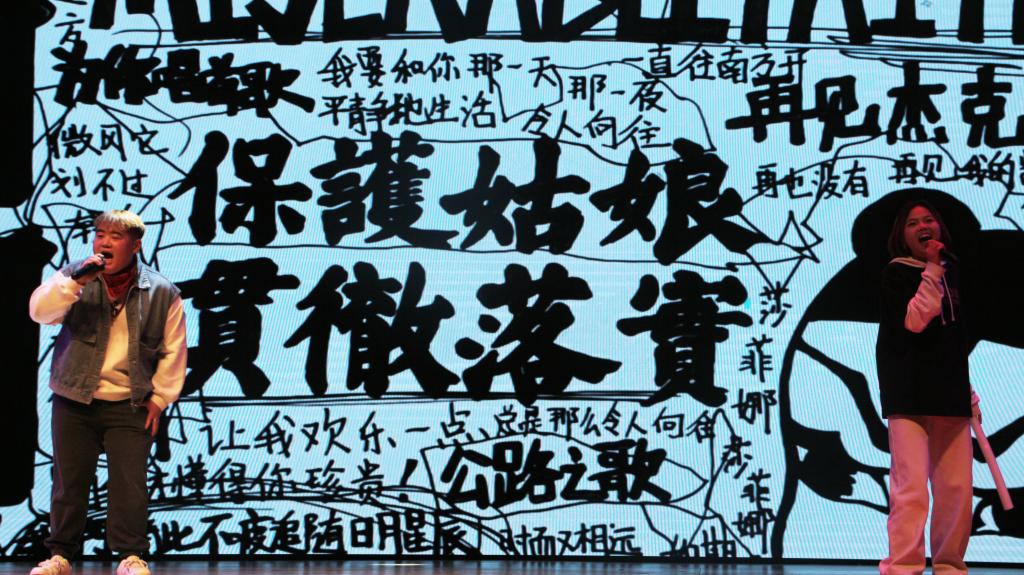 MISERABLE FAITH
为你唱首歌
我要和你那一天
一直往南方开
平静地生活
那一夜
令人向往
再见杰克
微风它
划不过
再也没有
再见 我的
保護姑娘
貫徹落實
莎菲娜莎菲娜
让我欢乐一点
总是那么令人向往
懂得你珍贵！
公路之歌
此不疲追随日明星辰